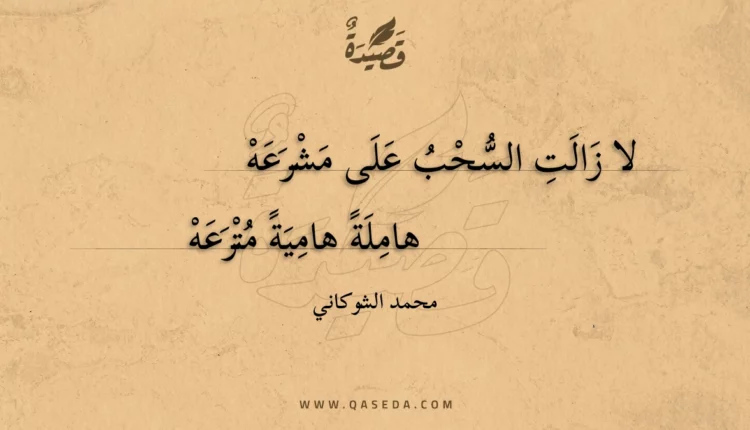 قَصِيدَةٌ
لا زَالَتِ السُّحْبُ عَلَى مَشْرَعَهْ
هامِلَةً هامِيَةً مُتْرَعَهْ
محمد الشوكاني
WWW.QASEDA.COM